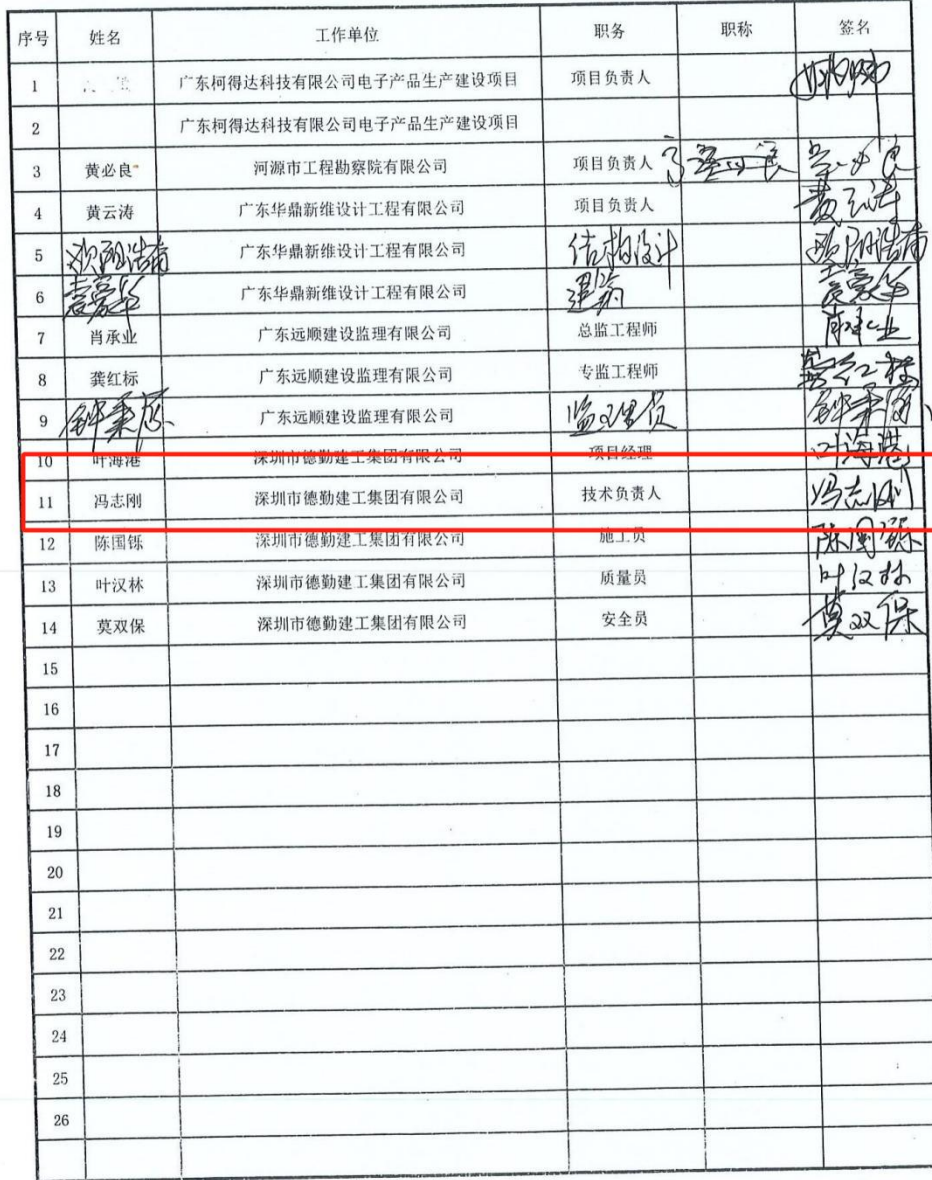 序号 姓名 工作单位 职务 职称 签名
1 广东柯得达科技有限公司电子产品生产建设项目 项目负责人
2 广东柯得达科技有限公司电子产品生产建设项目
3 黄必良 河源市工程勘察院有限公司 项目负责人
4 黄云涛 广东华鼎新维设计工程有限公司 项目负责人 黄云涛
5 广东华鼎新维设计工程有限公司 结构设计
6 袁爱华 广东华鼎新维设计工程有限公司 建筑 袁爱华
7 肖承业 广东远顺建设监理有限公司 总监工程师 肖承业
8 龚红标 广东远顺建设监理有限公司 专监工程师 龚红标
9 广东远顺建设监理有限公司 监理员
10 叶海港 深圳市德勤建工集团有限公司 项目经理 叶海港
11 冯志刚 深圳市德勤建工集团有限公司 技术负责人 冯志刚
12 陈国铄 深圳市德勤建工集团有限公司 施工员 陈国铄
13 叶汉林 深圳市德勤建工集团有限公司 质量员 叶汉林
14 莫双保 深圳市德勤建工集团有限公司 安全员 莫双保
15
16
17
18
19
20
21
22
23
24
25
26